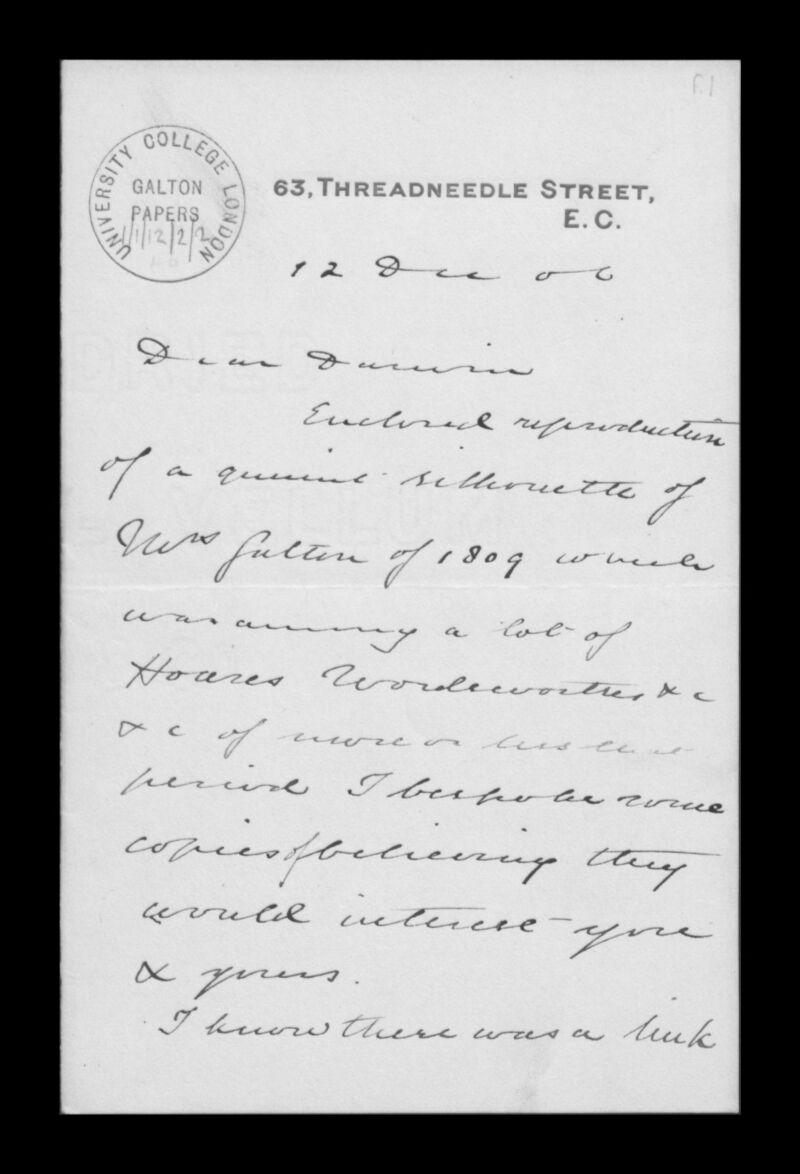 UNIVERSITY COLLEGE LONDON
GALTON
PAPERS
1/1/12/2/2
63, THREADNEEDLE STREET,
E.C.
12 Dec 06
Dear Darwin
Enclosed reproduction
of a quaint silhouette of
Mrs Galton of 1809 which
was among a lot of
Hoares Wordsworths &c
&c of more or less that
period I bespoke some
copies of believing they
would interest you
& yours.
I know there was a link